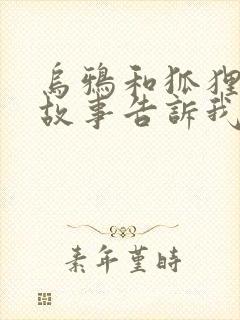 烏鴉和狐狸
故事告訴我
素年堇時